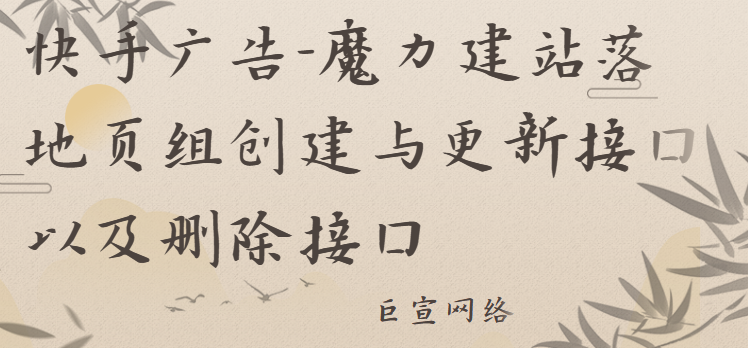 快手广告-魔力建站落
地页组创建与更新接口
以及删除接口
巨宣网络